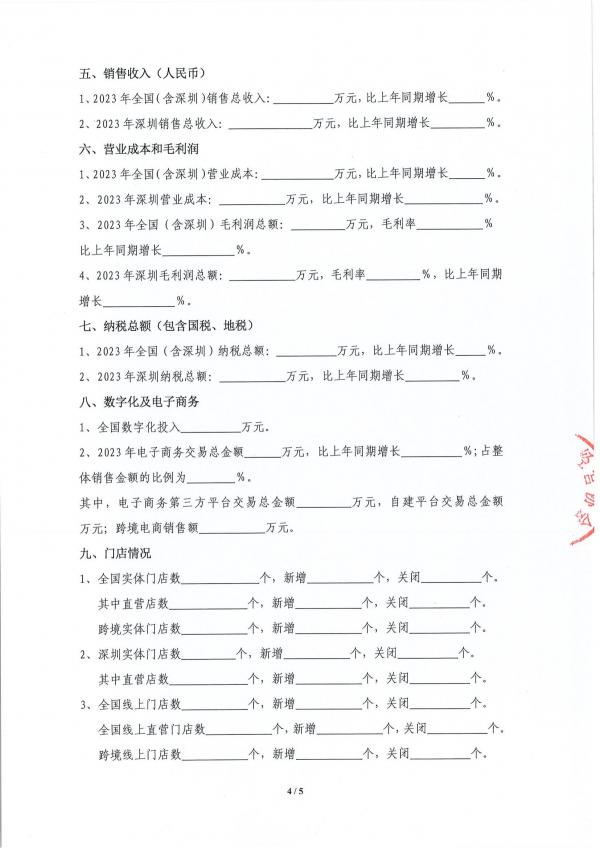 五、销售收入（人民币）
1、2023年全国（含深圳）销售总收入：__________万元，比上年同期增长______%。
2、2023年深圳销售总收入：______________万元，比上年同期增长______%。
六、营业成本和毛利润
1、2023年全国（含深圳）营业成本：____________万元，比上年同期增长______%。
2、2023年深圳营业成本：____________万元，比上年同期增长____________%。
3、2023年全国（含深圳）毛利润总额：_________万元，毛利率_____________%
比上年同期增长____________%。
4、2023年深圳毛利润总额：___________万元，毛利率_________%，比上年同期
增长____________%。
七、纳税总额（包含国税、地税）
1、2023年全国（含深圳）纳税总额：__________万元，比上年同期增长_____%。
2、2023年深圳纳税总额：_______________万元，比上年同期增长_________%。
八、数字化及电子商务
1、全国数字化投入__________万元。
2、2023年电子商务交易总金额______万元，比上年同期增长_________%；占整
体销售金额的比例为________%。
其中，电子商务第三方平台交易总金额_________万元，自建平台交易总金额
万元；跨境电商销售额__________万元。
九、门店情况
1、全国实体门店数_____________个，新增___________个，关闭__________个。
其中直营店数_____________个，新增___________个，关闭____________个。
跨境实体门店数____________个，新增___________个，关闭__________个。
2、深圳实体门店数_________个，新增___________个，关闭____________个。
其中直营店数_____________个，新增___________个，关闭____________个。
3、全国线上门店数____________个，新增___________个，关闭__________个。
全国线上直营门店数___________个，新增_________个，关闭____________个。
跨境线上门店数____________个，新增___________个，关闭__________个。
4 / 5